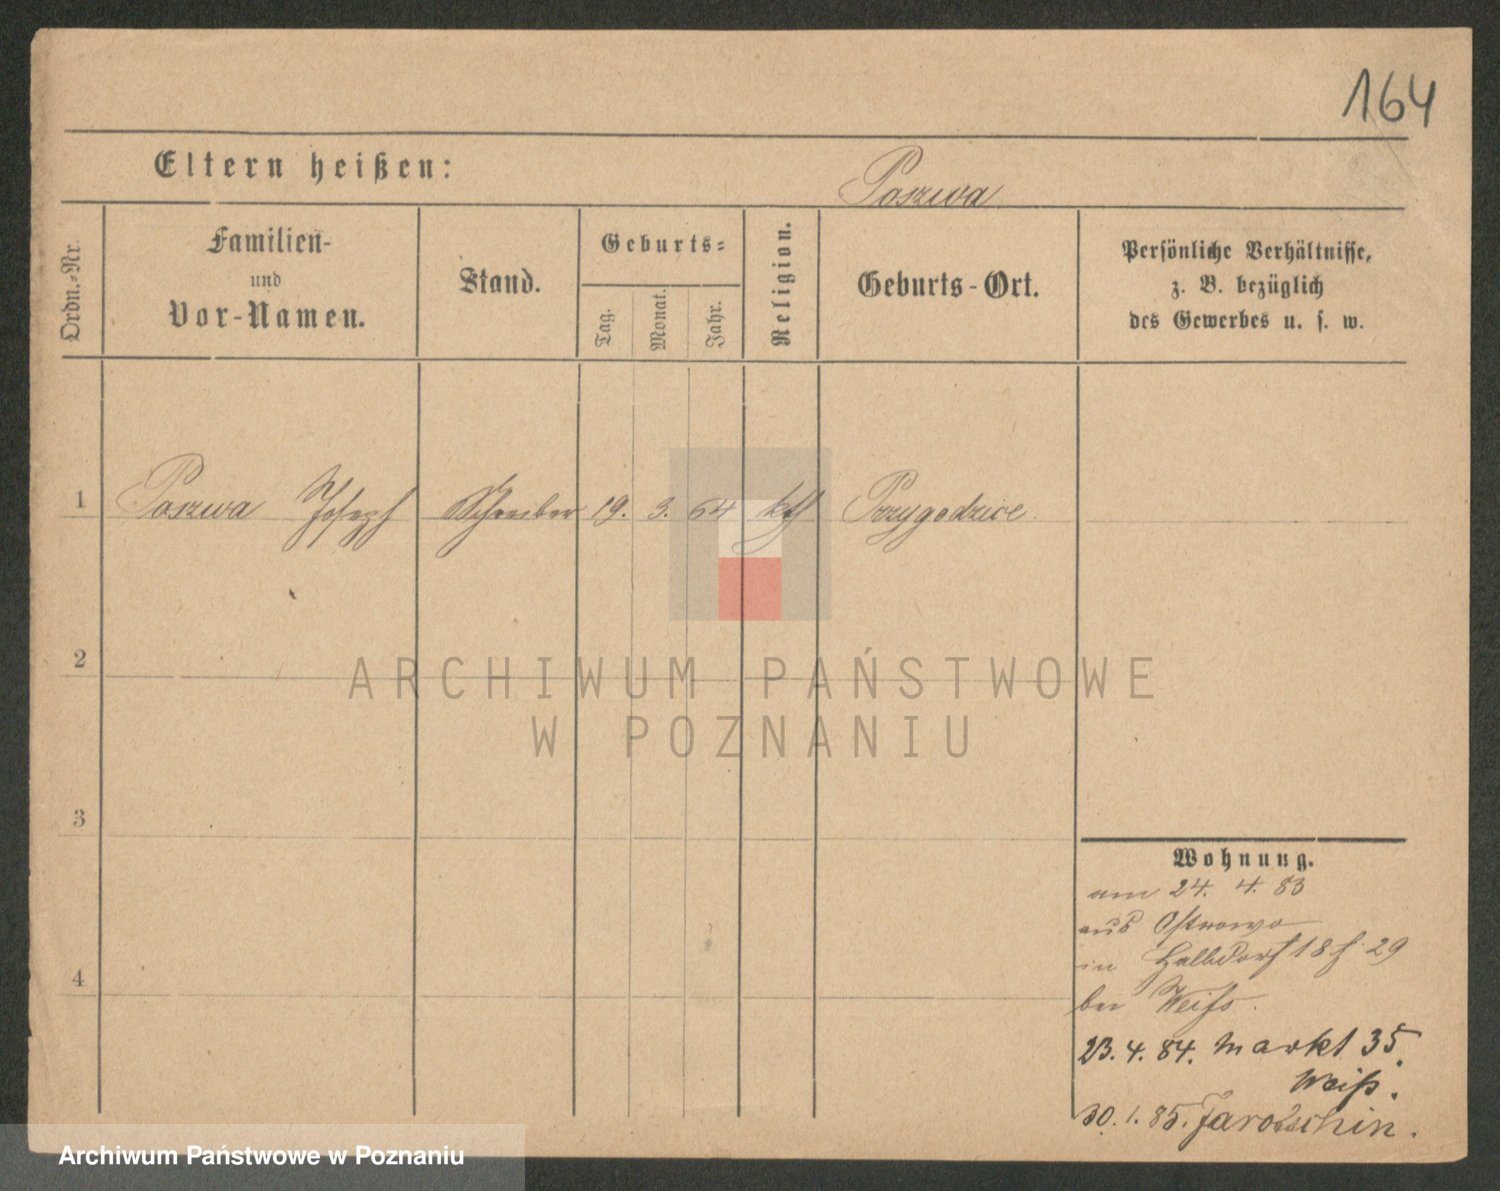 164
Eltern heißen:
Poszwa
Ordn.-Nr.
Familien-
und
Vor-Namen.
Stand.
Geburts-
Tag.
Monat.
Jahr.
Religion.
Geburts-Ort.
Persönliche Verhältnisse,
z. B. bezüglich
des Gewerbes u. s. w.
1 Poszwa Joseph Schreiber 19. 3. 64 kth Przygodzice.
2
3
4
Wohnung.
am 24. 4. 83
aus Ostrowo
in Halbdorf 18 f. 29
bei Weiss.
23. 4. 84. Markt 35.
Weiß.
30. 1. 85. Jarotschin.
ARCHIWUM PAŃSTWOWE
W POZNANIU
Archiwum Państwowe w Poznaniu